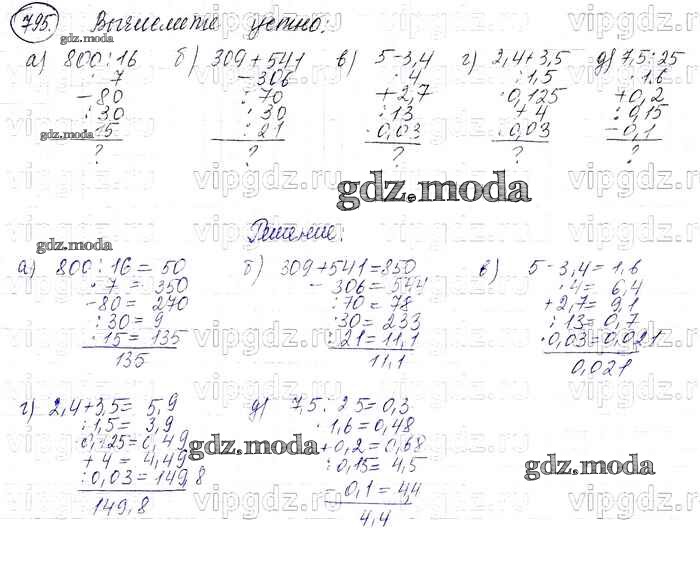 795. Вычислите устно:
gdz.moda
а) 800:16 б) 309+541 в) 5-3,4 г) 2,4+3,5 д) 7,5:25
·7 -306 ·4 :1,5 ·1,6
-80 :70 +2,7 ·0,125 +0,2
:30 ·30 :13 +4 :0,15
gdz.moda ·15 :21 ·0,03 :0,03 -0,1
? ? ? ? ?
vipgdz.ru vipgdz.ru vipgdz.ru
gdz.moda
Решение:
gdz.moda
а) 800:16=50 б) 309+541=850 в) 5-3,4=1,6
·7=350 -306=544 ·4=6,4
-80=270 :70=78 +2,7=9,1
:30=9 ·30=233 :13=0,7
·15=135 :21=11,1 ·0,03=0,021
135 11,1 0,021
г) 2,4+3,5=5,9 д) 7,5:25=0,3
:1,5=3,9 ·1,6=0,48
·0,125=0,49 +0,2=0,68
gdz.moda
+4=4,49 :0,15=4,5
gdz.moda
:0,03=149,8 -0,1=4,4
149,8 4,4